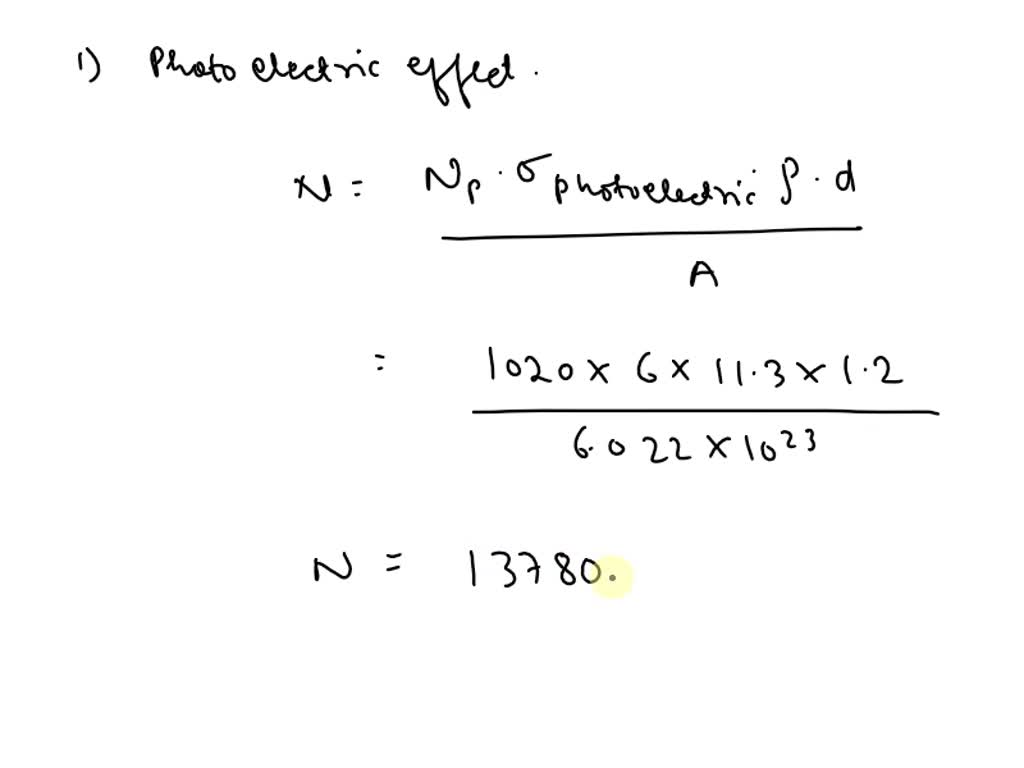 1) Photo electric effect.
N = Np · σphotoelectric ρ · d
A
= 1020 x 6 x 11.3 x 1.2
6.022 x 10^23
N = 13780.